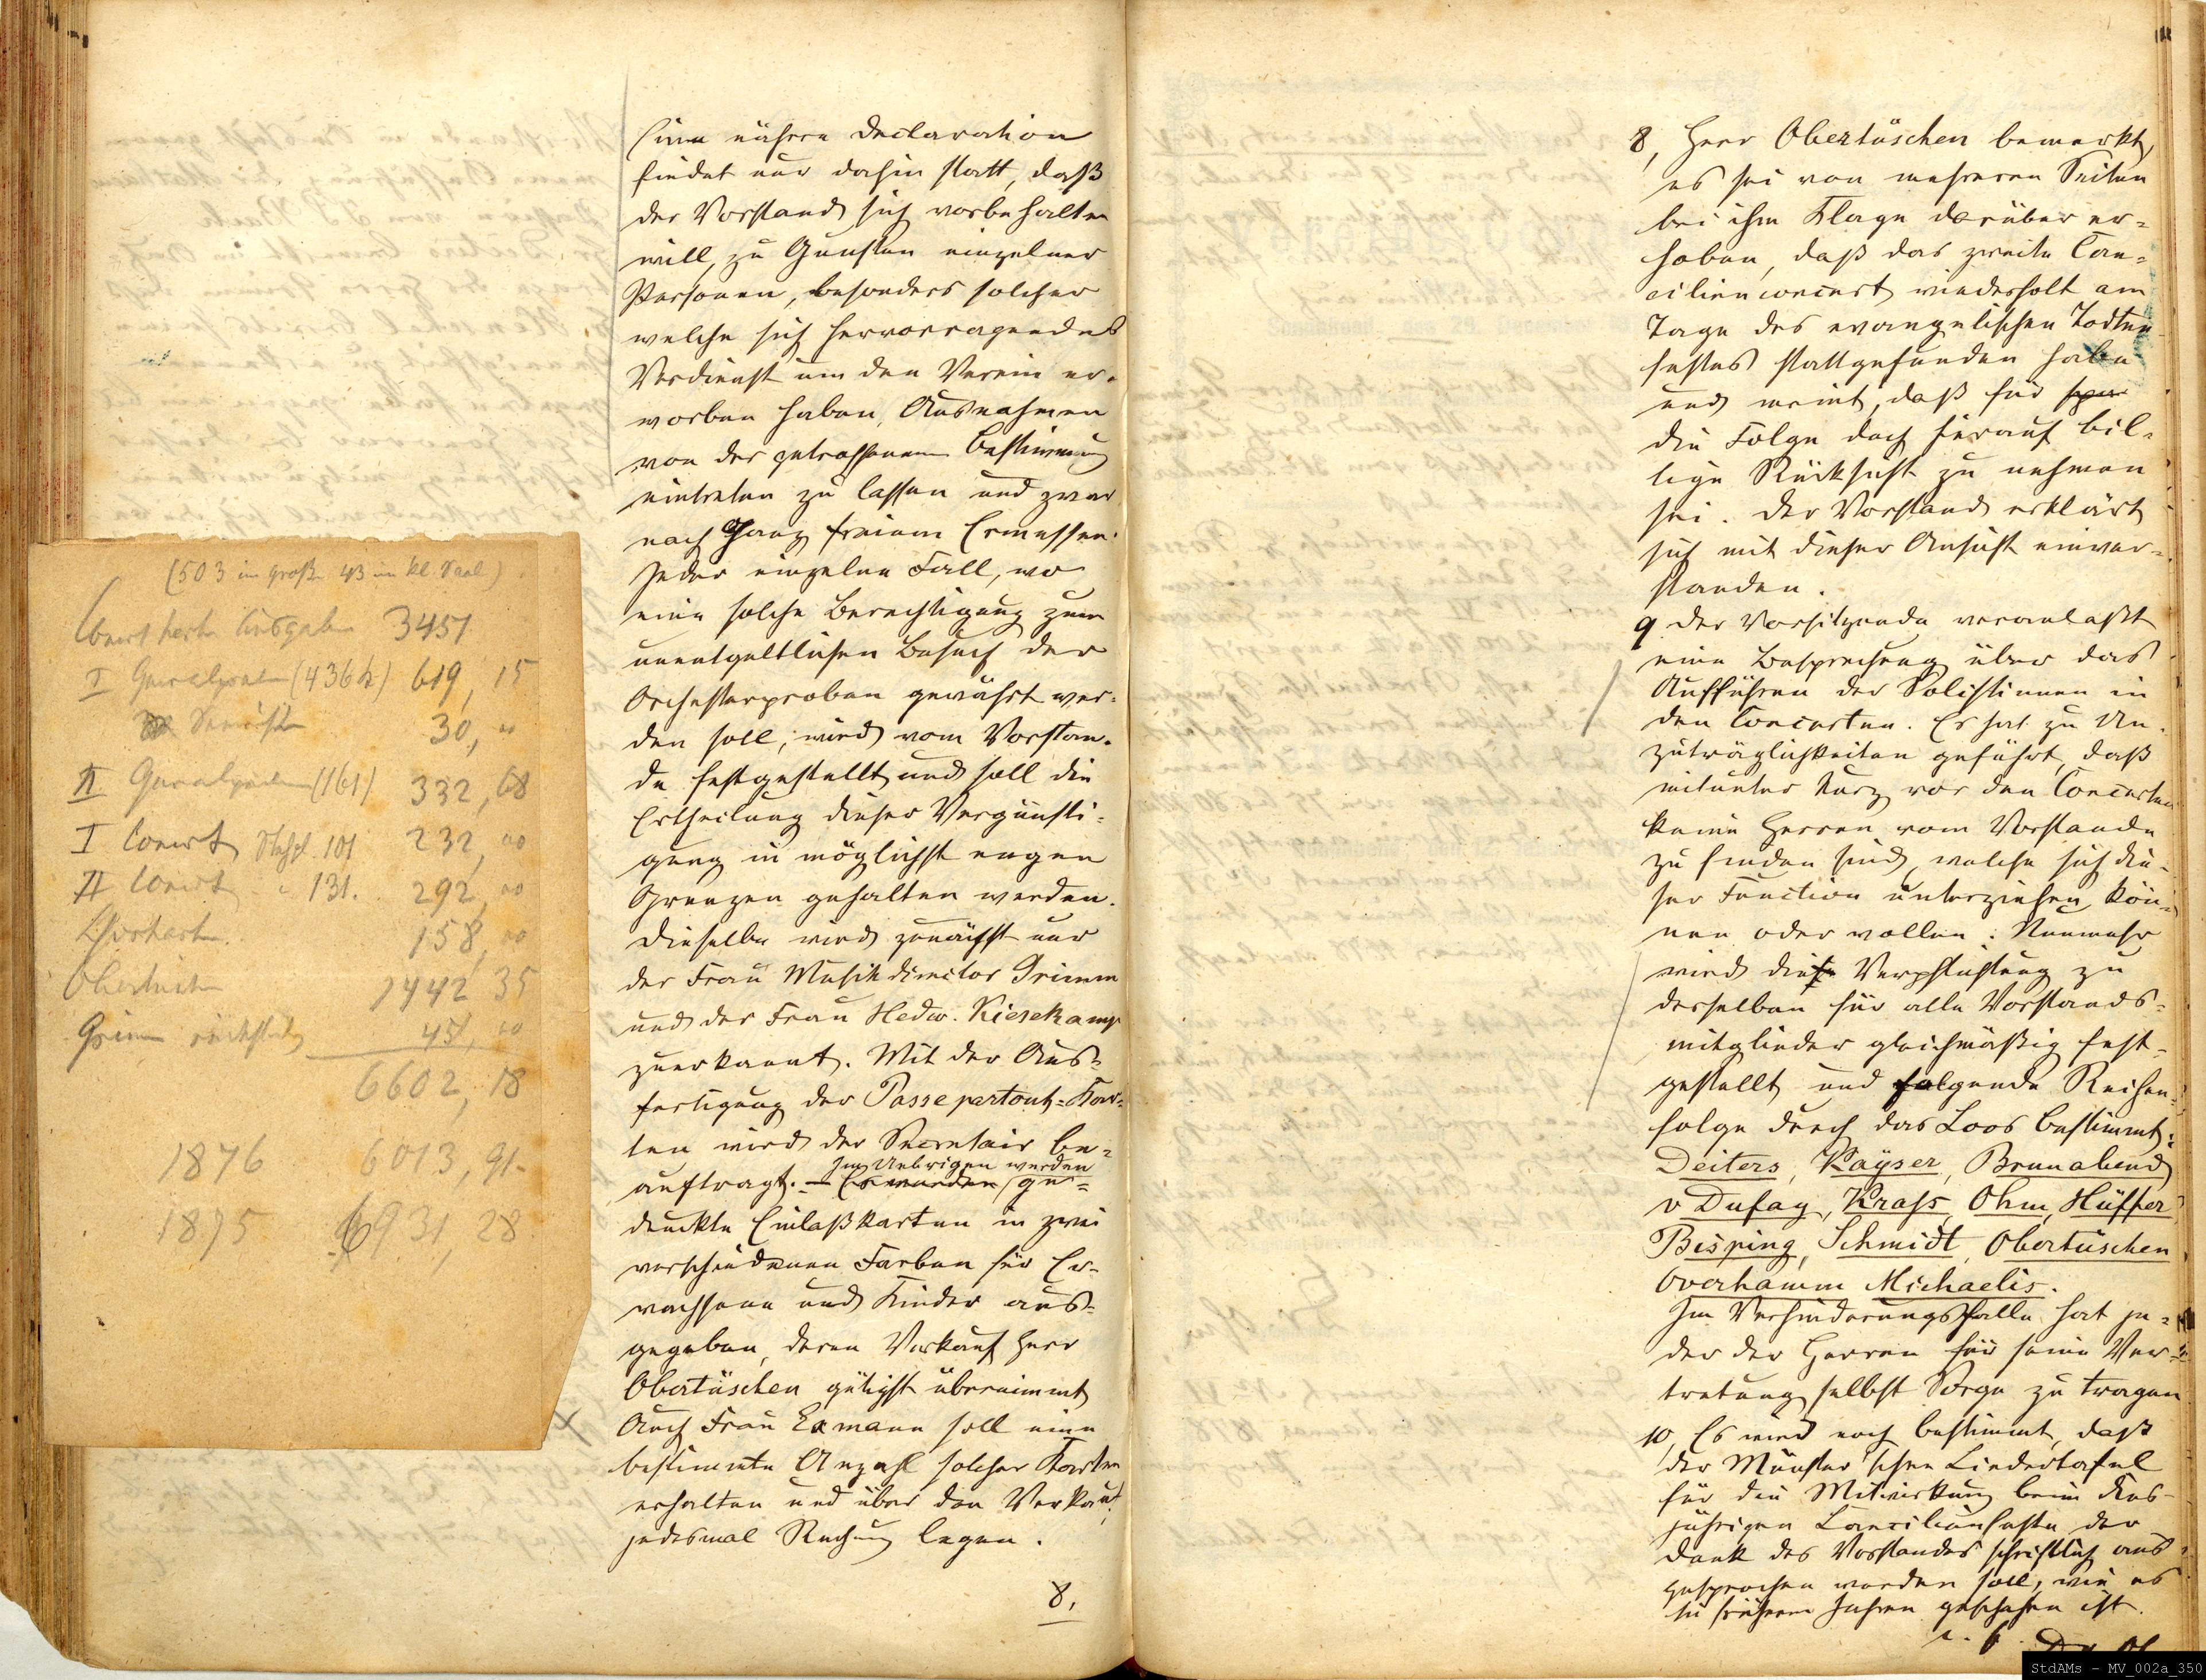 (503 im große 43 im kl. Saal)
Concert karten Ausgabe 3451
I Generalprobe (436 k) 619, 15
30, "
II Generalproben (161) 332, 68
I Concert 101 232, 00
II Concert " 131. 292, 00
158, 00
Obertüschen 1442 35
Grimm rückständig 45, 00
6602, 18
1876 6013, 91-
1875 6931, 28
Eine nähere Declaration
findet nur dahin statt, daß
der Vorstand sich vorbehalten
will, zu Gunsten einzelner
Personen, besonders solcher
welche sich hervorragendes
Verdienst um den Verein er-
worben haben, Ausnahmen
von der getroffenen Bestimmung
eintreten zu lassen und zwar
nach ganz freiem Ermessen.
Jeder einzelne Fall, wo
eine solche Berechtigung zum
unentgeltlichen Besuch der
Orchesterproben gewährt wer-
den soll, wird vom Vorstan-
de festgestellt und soll die
Ertheilung dieser Vergünsti-
gung in möglichst engen
Grenzen gehalten werden.
Dieselbe wird zunächst nur
der Frau Musikdirector Grimm
und der Frau Hedw. Kiesekamp
zuerkannt. Mit der Aus-
fertigung der Passepartout-Kar-
ten wird der Secretair be-
auftragt. – Es werden Im Uebrigen werden ge-
druckte Einlaßkarten in zwei
verschiedenen Farben für Er-
wachsene und Kinder aus-
gegeben, deren Verkauf Herr
Obertüschen gütigst übernimmt
Auch Frau Exmann soll eine
bestimmte Anzahl solcher Karten
erhalten und über den Verkauf
jedesmal Rechnung legen.
8,
8, Herr Obertüschen bemerkt,
es sei von mehreren Seiten
bei ihm Klage darüber er-
hoben, daß das zweite Cae-
cilienconcert wiederholt am
Tage des evangelischen Todten
festes stattgefunden habe
und meint, daß für
die Folge doch hierauf bil-
lige Rücksicht zu nehmen
sei. Der Vorstand erklärt
sich mit dieser Ansicht einver-
standen.
9. Der Vorsitzende veranlaßt
eine Besprechung über das
Aufführen der Solistinnen in
den Concerten. Es hat zu Un-
zuträglichkeiten geführt, daß
mitunter kurz vor den Concerten
keine Herren vom Vorstande
zu finden sind, welche sich die-
ser Function unterziehen kön-
nen oder wollen. Nunmehr
wird die Verpflichtung zu
derselben für alle Vorstands-
mitglieder gleichmäßig fest-
gestellt und folgende Reihen-
folge durch das Loos bestimmt:
Deiters, Kayser, Brunabend
v Dufay, Krass, Ohm, Hüffer
Bisping, Schmidt, Obertüschen
Overhamm Michaelis.
Im Verhinderungsfalle hat je-
der der Herren für seine Ver-
tretung selbst Sorge zu tragen
10, Es wird noch bestimmt, daß
der Münster'schen Liedertafel
für die Mitwirkung beim dies-
jährigen Caecilienfeste der
Dank des Vorstandes schriftlich aus
gesprochen werden soll, wie es
in früheren Jahren geschehen ist.
StdAMs - MV_002a_350